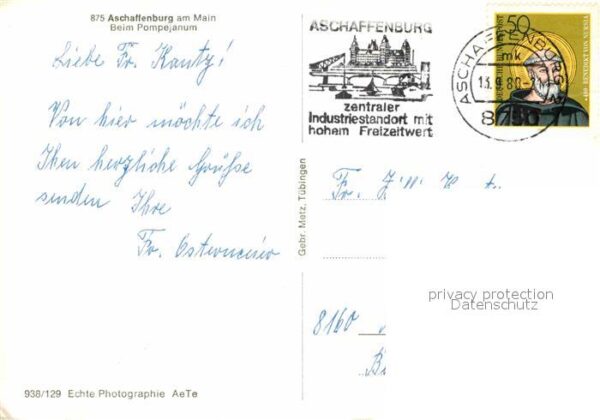 875 Aschaffenburg am Main
Beim Pompejanum
Liebe Fr. Kautz!
Von hier möchte ich
Ihen herzliche Grüße
senden Ihre
Fr.
938/129 Echte Photographie AeTe
Gebr. Metz, Tübingen
ASCHAFFENBURG
zentraler
Industriestandort mit
hohem Freizeitwert
ASCHAFFENBURG
mk
13.9.80
8750
50
DEUTSCHE BUNDESPOST
BENEDIKT VON NURSIA
Fr.
8160
privacy protection
Datenschutz